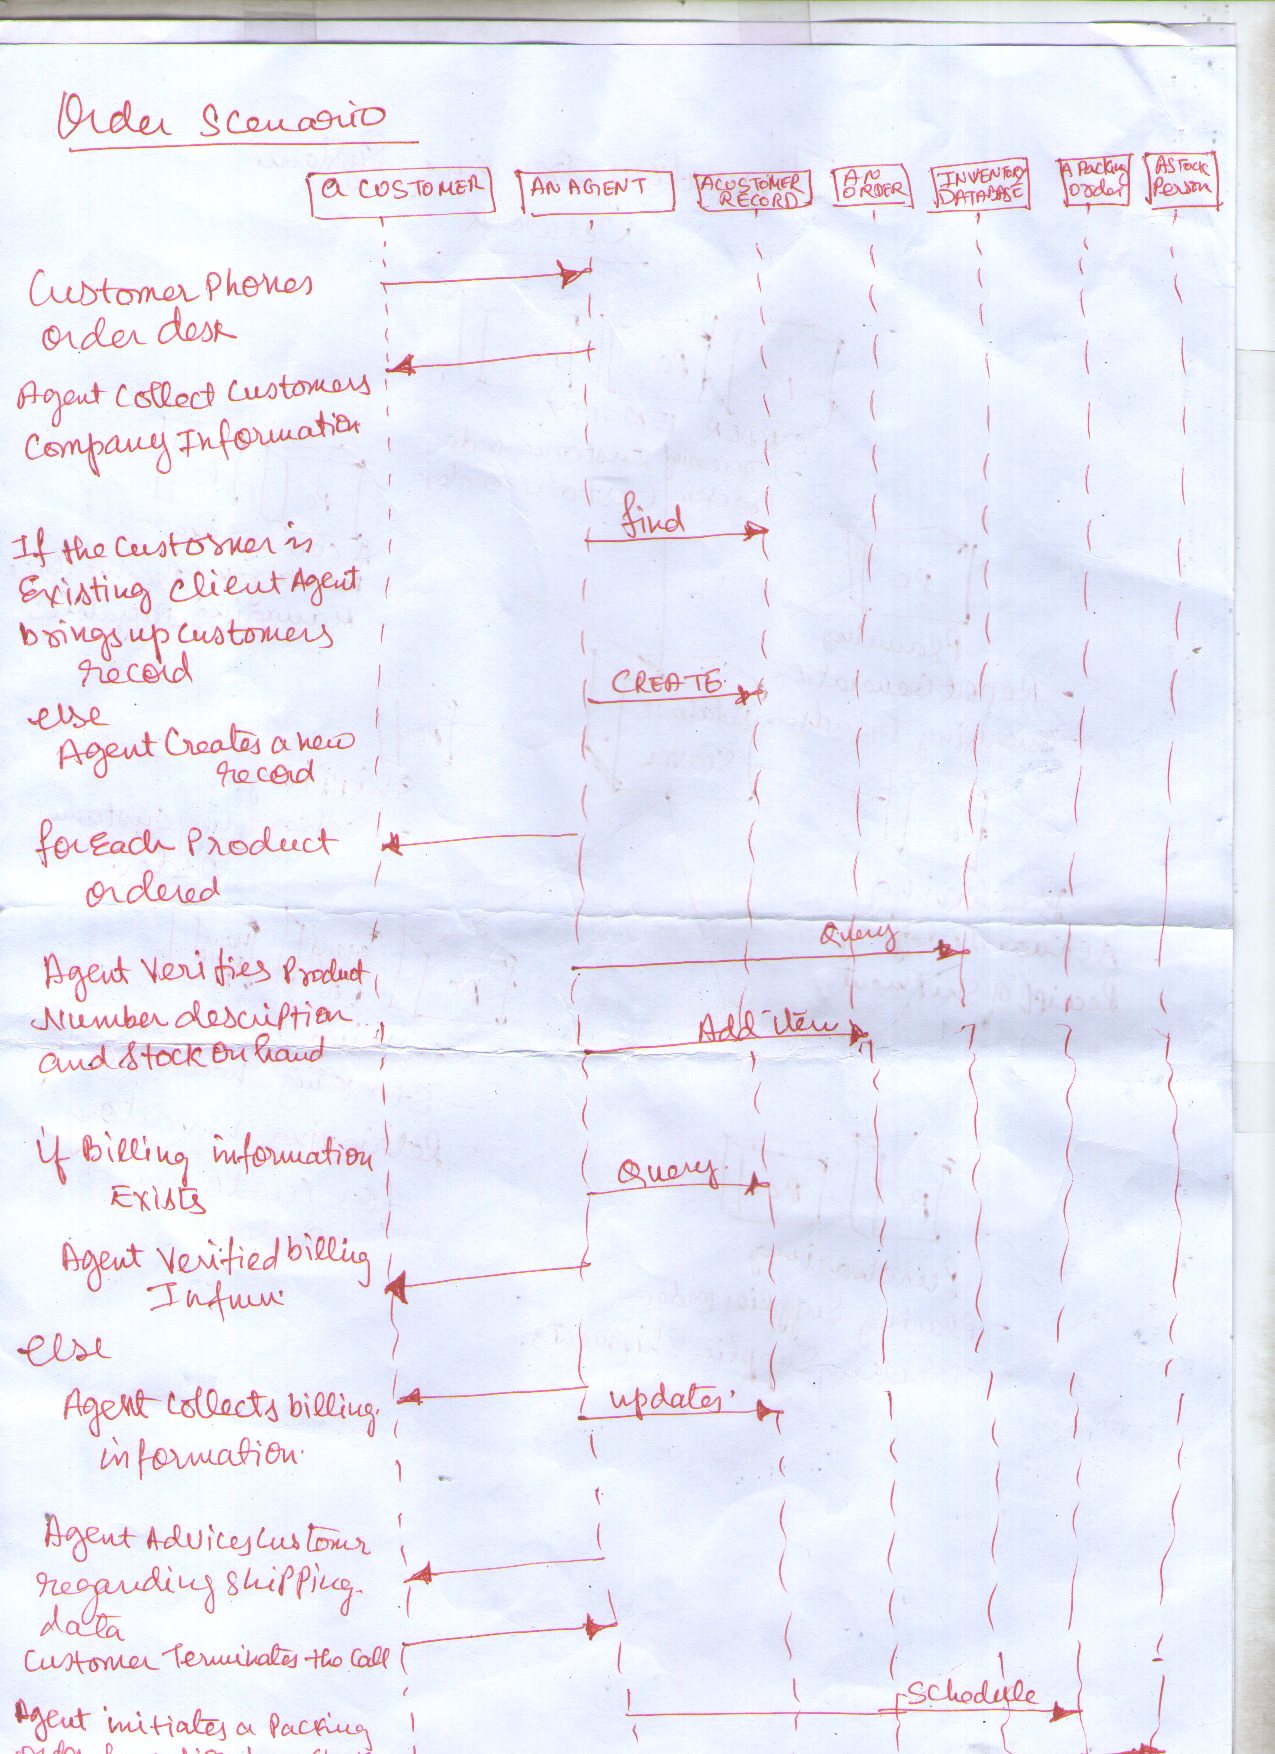 Order Scenario
A CUSTOMER
AN AGENT
A CUSTOMER
RECORD
AN
ORDER
INVENTORY
DATABASE
A Packing
Order
A Stock
Person
Customer Phones
order desk
Agent Collect Customers
Company Information
find
If the Customer is
Existing Client Agent
brings up customers
record
CREATE
else
Agent Creates a new
record
for Each Product
ordered
Query
Agent Verifies Product
Number description
and Stock On hand
Add item
if Billing information
Exists
Query
Agent Verified billing
else
Agent Collects billing
information
updates
Agent Advices Customer
regarding shipping
data
Customer Terminates the Call
Schedule
Agent initiates a Packing